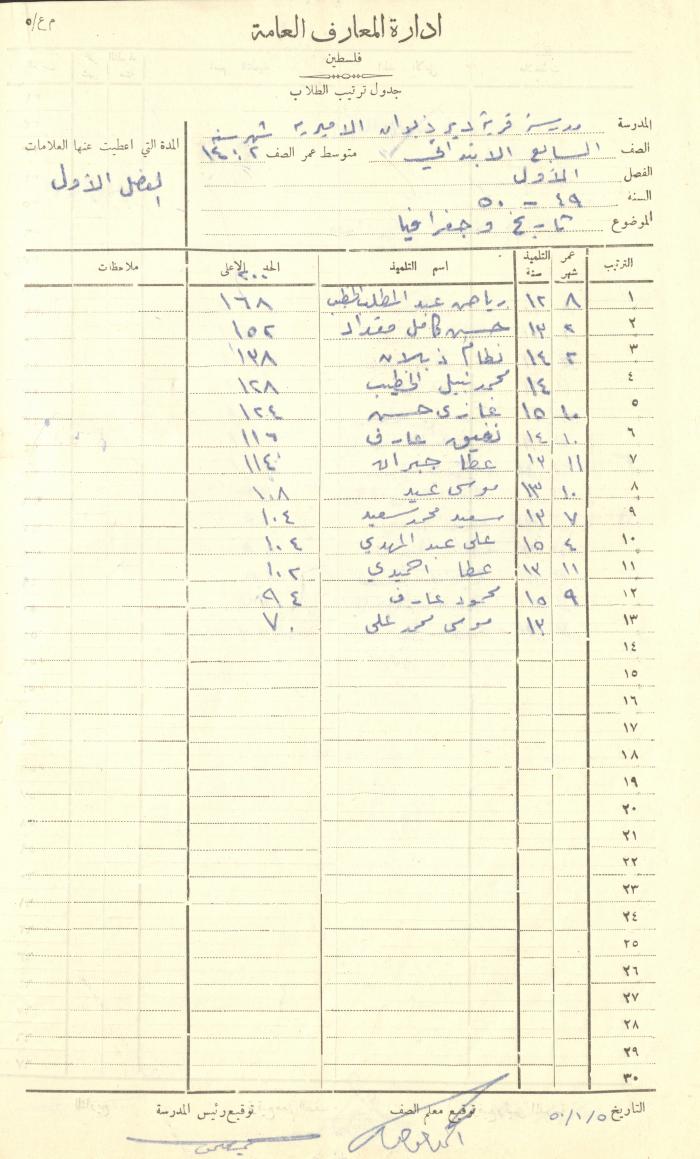 م ع/٥
ادارة المعارف العامة
فلسطين
جدول ترتيب الطلاب
المدرسة مدرسة قرية دير ذبوان الاميرية
الصف السابع الابتدائي متوسط عمر الصف شهر سنة ٢ : ١٤
المدة التي اعطيت عنها العلامات
الفصل الأول
الفصل الأول
السنة ٤٩ - ٥٠
الموضوع تاريخ وجغرافيا
الترتيب عمر التلميذ شهر سنة اسم التلميذ الحد الاعلى ٢٠٠ ملاحظات
١ ٨ ١٢ رياض عبد المطلب الخطيب ١٦٨
٢ ٢ ١٣ حسين كامل مقداد ١٥٢
٣ ٢ ١٤ نظام ذبلان ١٣٨
٤ ١٤ محمد نبيل الخطيب ١٢٨
٥ ١٠ ١٥ غازي حسن ١٢٤
٦ ١٠ ١٤ عارف ١١٦
٧ ١١ ١٢ عطا جبران ١١٤
٨ ١٠ ١٣ موسى عيد ١٠٨
٩ ٧ ١٣ سعيد محمد سعيد ١٠٤
١٠ ٤ ١٥ علي عبد المهدي ١٠٤
١١ ١١ ١٣ عطا احميدي ١٠٢
١٢ ٩ ١٥ محمود عارف ٩٤
١٣ ١٣ موسى محمد علي ٧٠
١٤
١٥
١٦
١٧
١٨
١٩
٢٠
٢١
٢٢
٢٣
٢٤
٢٥
٢٦
٢٧
٢٨
٢٩
٣٠
التاريخ ٥٠/١/٥ توقيع معلم الصف توقيع رئيس المدرسة